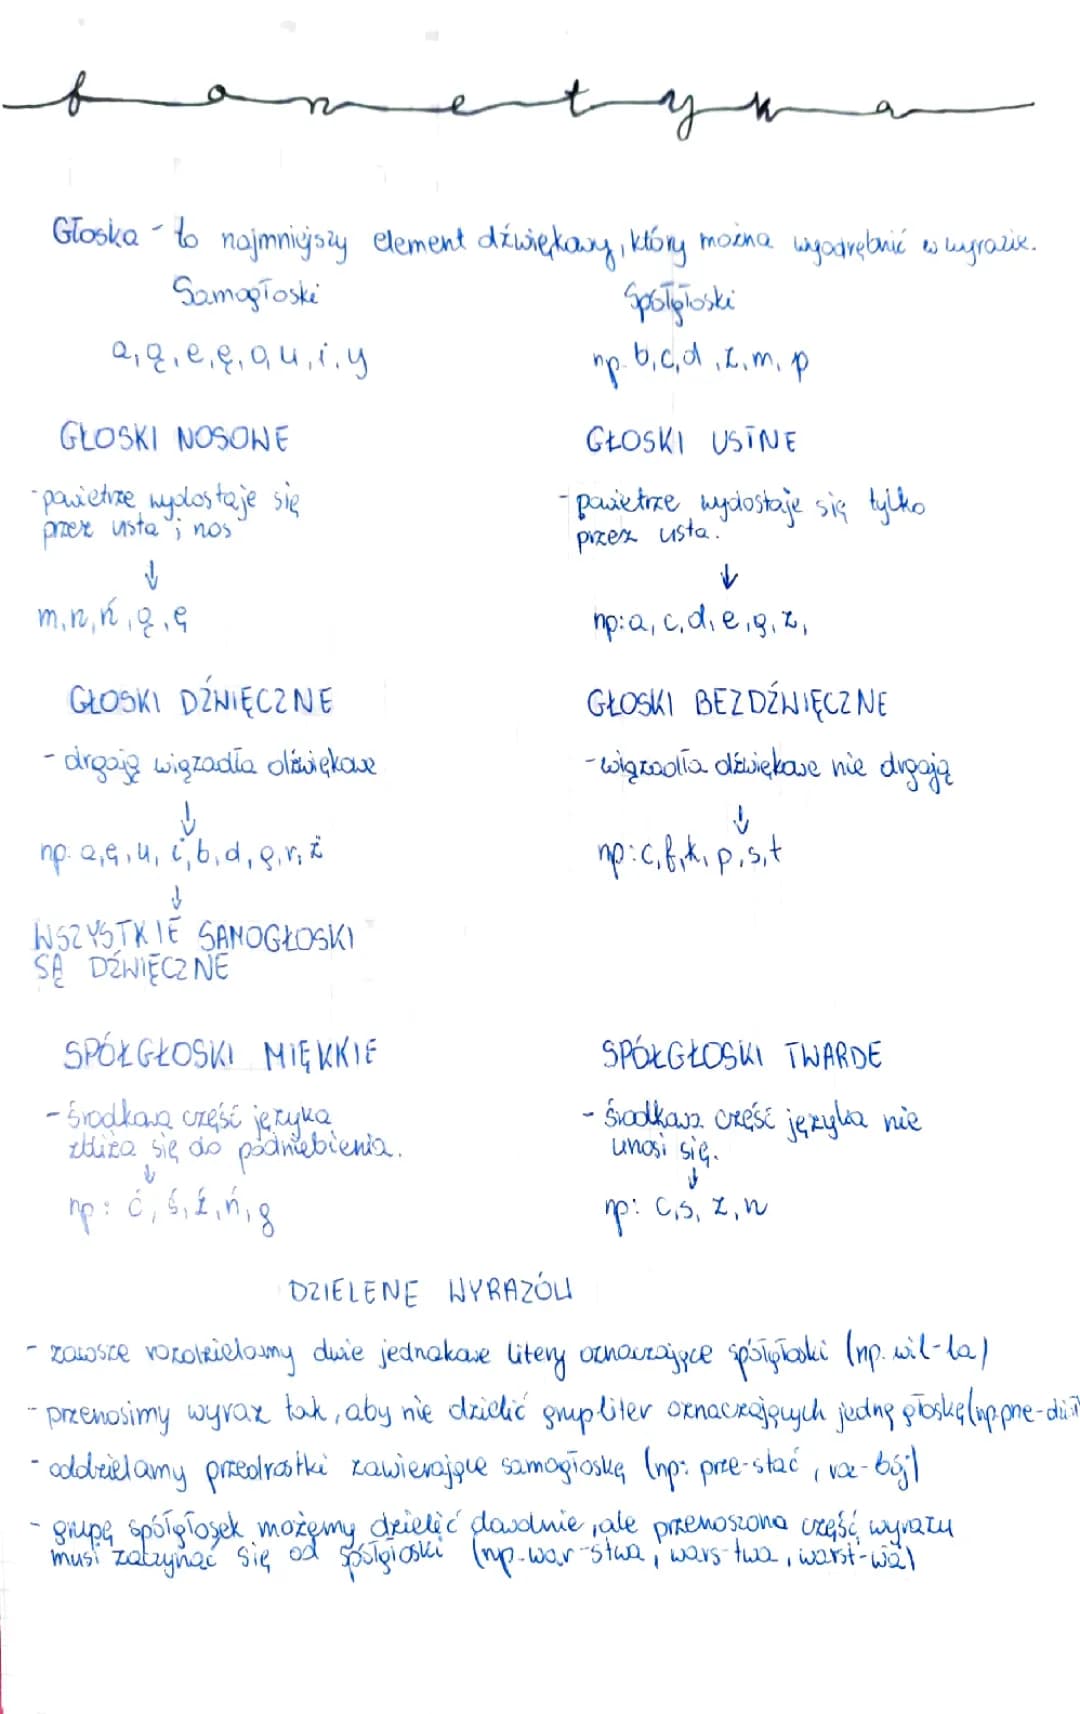 fonetyka
Głoska - to najmniejszy element dźwiękowy, który można wyodrębnić w wyrazie.
Samogłoski
Spółgłoski
a, ą, e, ę, o, u, i, y
np. b, c, d, z, m, p
GŁOSKI NOSOWE
GŁOSKI USTNE
- powietrze wydostaje się
przez usta i nos
- powietrze wydostaje się tylko
przez usta.
↓
↓
m, n, ń, ą, ę
np: a, c, d, e, g, z,
GŁOSKI DŹWIĘCZNE
GŁOSKI BEZDŹWIĘCZNE
- drgają wiązadła dźwiękowe
- wiązadła dźwiękowe nie drgają
↓
↓
np. a, ę, u, i, b, d, g, r, ż
np: c, f, k, p, s, t
↓
WSZYSTKIE SAMOGŁOSKI
SĄ DŹWIĘCZNE
SPÓŁGŁOSKI MIĘKKIE
SPÓŁGŁOSKI TWARDE
- środkowa część języka
zbliża się do podniebienia.
- środkowa część języka nie
unosi się.
↓
↓
np: ć, ś, ź, ń, g
np: c, s, z, n
DZIELENE WYRAZÓW
- zawsze rozdzielamy dwie jednakowe litery oznaczające spółgłoski (np. wil-la)
- przenosimy wyraz tak, aby nie dzielić grup liter oznaczających jedną głoskę (np.
- oddzielamy przedrostki zawierające samogłoskę (np: prze-stać, roz-bój)
- grupę spółgłosek możemy dzielić dowolnie, ale przenoszona część wyrazu
musi zaczynać się od spółgłoski (np. war-stwa, wars-twa, warst-wa)